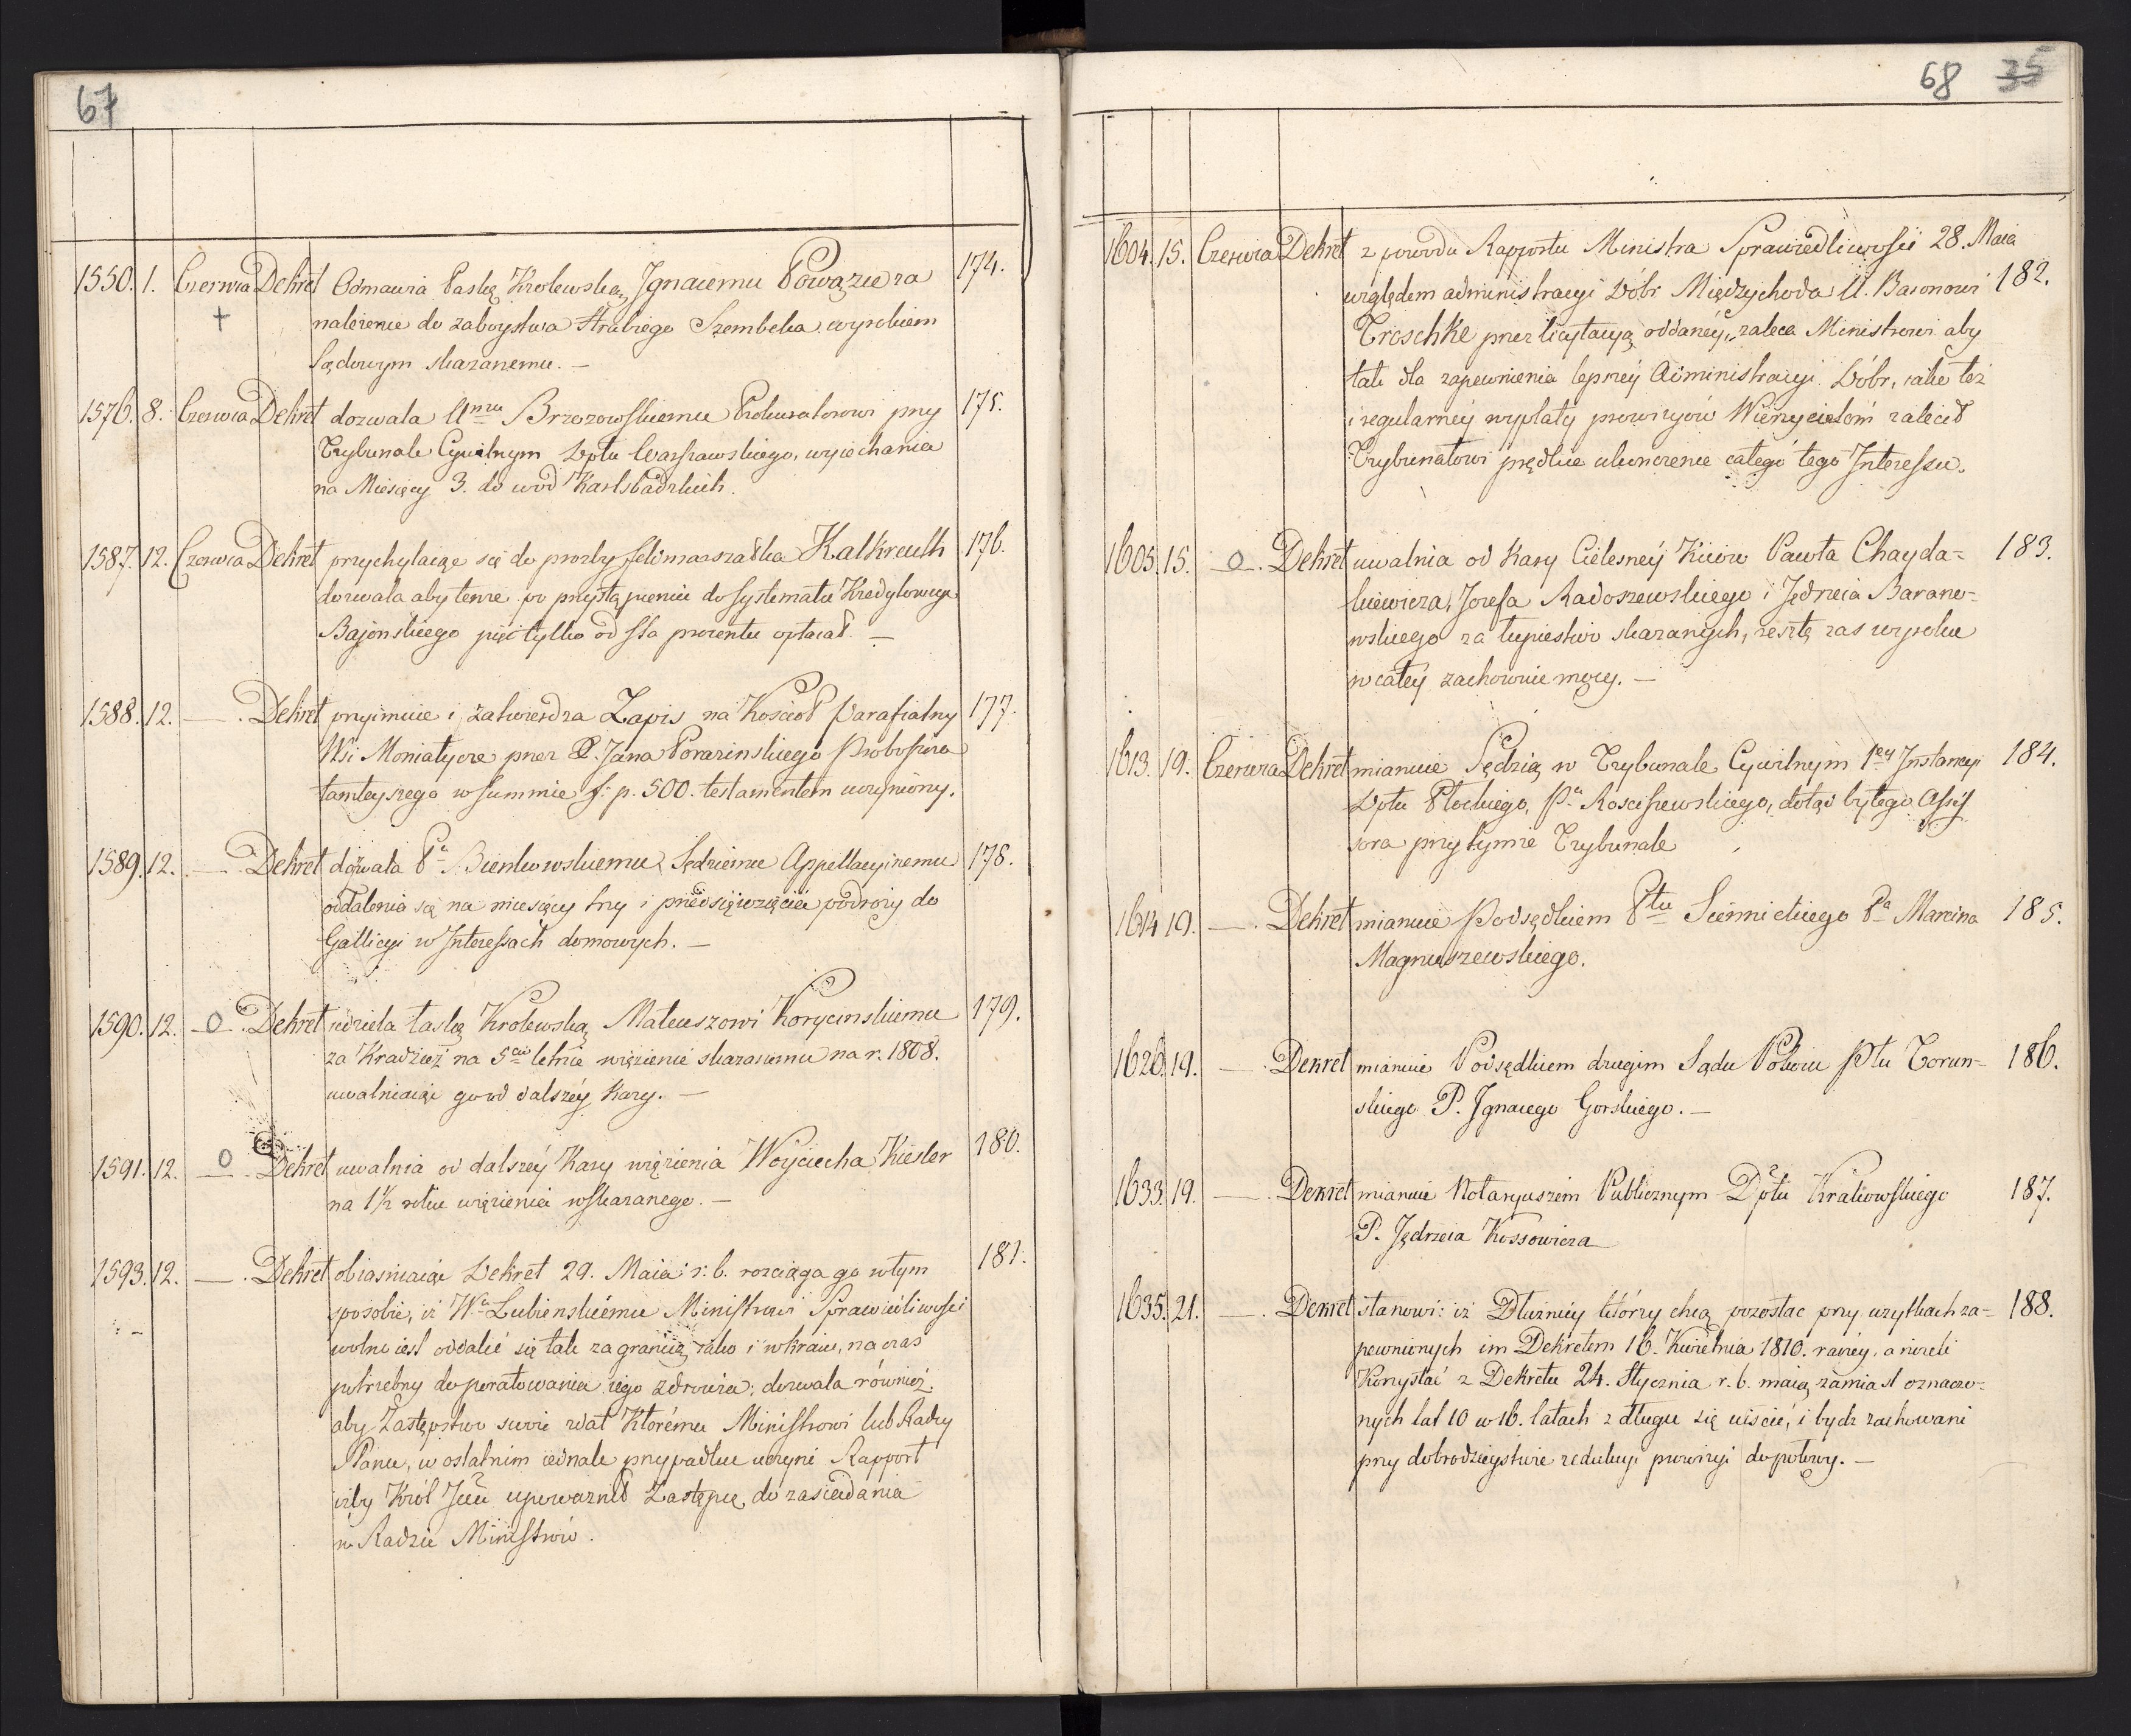 67
1550. 1. Czerwca Dekret Odmawia Łaskę Krolewską Ignacemu Powązce za 174.
+ należenie do zaboystwa Hrabiego Szembeka wyrokiem
Sądowym skazanemu. —
1576. 8. Czerwca Dekret dozwala Brzozowskiemu Prokuratorowi przy 175.
Trybunale Cywilnym Dptu Warszawskiego, wyiechania
na Miesięcy 3. do wód Karlsbadzkich.
1587. 12. Czerwca Dekret przychylaiąc się do prozby feldmarszałka Kalkreuth 176.
dozwala aby tenże po przystąpieniu do systematu Kredytowego
Bajońskiego pięć tylko od sta procentu opłacał. —
1588. 12. — . Dekret przyimuie i zatwierdza Zapis na Kościoł Parafialny 177.
Wsi Moniatycze przez P. Jana Porazinskiego Proboszcza
tamteyszego w summie f. p. 500. testamentem uczyniony.
1589. 12. — . Dekret dozwala Pu Bienkowskiemu Sędziemu Appellacyinemu 178.
oddalenia się na miesięcy trzy i przedsięwzięcie podroży do
Gallicyi w Interessach domowych. —
1590. 12. — O . Dekret udziela łaskę Krolewską Mateuszowi Korycinskiemu 179.
za Kradzież na 5cio letnie więzienie skazanemu na r. 1808.
uwalniaiąc go od dalszéy kary. —
1591. 12. O — . Dekret uwalnia od dalszéy Kary więzienia Woyciecha Kiesler 180.
na 1½ roku więzienia wskazanego. —
1593. 12. — . Dekret obiasniaiąc Dekret 29. Maia r. b. rozciąga go w tym 181.
sposobie, iż Wu Lubienskiému Ministrowi Sprawiedliwości
wolno iest oddalić się tak za granicę, iako i w kraiu, na czas
potrzebny do poratowania iego zdrowia; dozwala również
aby Zastępstwo Któremu Ministrowi lub Radzcy
Stanu, w ostatnim iednak przypadku uczyni Rapport
iżby Król Jmć upoważnił Zastępcę do zasiadania
w Radzie Ministrów.
68 35
1604. 15. Czerwca Dekret z powodu Rapportu Ministra Sprawiedliwości 28. Maia
względem administracyi Dóbr Międzychoda U. Baronowi 182.
Troschke przez licytacyą oddanéy, zaleca Ministrowi aby
tak dla zapewnienia lepszéy Administracyi Dóbr, iako też
i regularnéy wypłaty prowizyów Wierzycielom zalecił
Trybunałowi prędkie ukonczenie całego tego Interessu.
1605. 15. — O . Dekret uwalnia od Kary Cielesnéy Kiiów Pawła Chayda= 183.
kiewicza, Jozefa Radoszewskiego i Jędrzeia Barano=
wskiego za łupiestwo skazanych, resztę zas wyroku
w całéy zachowuie mocy. —
1613. 19. Czerwca Dekret mianuie Sędzią w Trybunale Cywilnym 1ey Instancyi 184.
Dptu Płockiego, Pa Rosciszewskiego, dotąd byłego Asses
sora przy tymże Trybunale
1614 19. — . Dekret mianuie Podsędkiem Ptu Siennickiego Pa Marcina 185.
Magnuszewskiego.
1626. 19. — . Dekret mianuie Podsędkiem drugim Sądu Pokoiu Ptu Torun= 186.
skiego P. Ignacego Gorskiego. —
1633. 19. — . Dekret mianuie Notaryuszem Publicznym Dptu Krakowskiego 187.
P. Jędrzeia Kossowicza
1635. 21. — . Dekret stanowi: iż Dłużnicy którzy chcą pozostac przy użytkach za= 188.
pewnionych im Dekretem 16. Kwietnia 1810. raczéy, a nizeli
Korzystać z Dekretu 24. Stycznia r. b. maią zamiast oznaczo=
nych lat 10 w 16. latach z długu się uiścić, i bydz zachowani
przy dobrodzieystwie redukcyi prowizyi do połowy. —